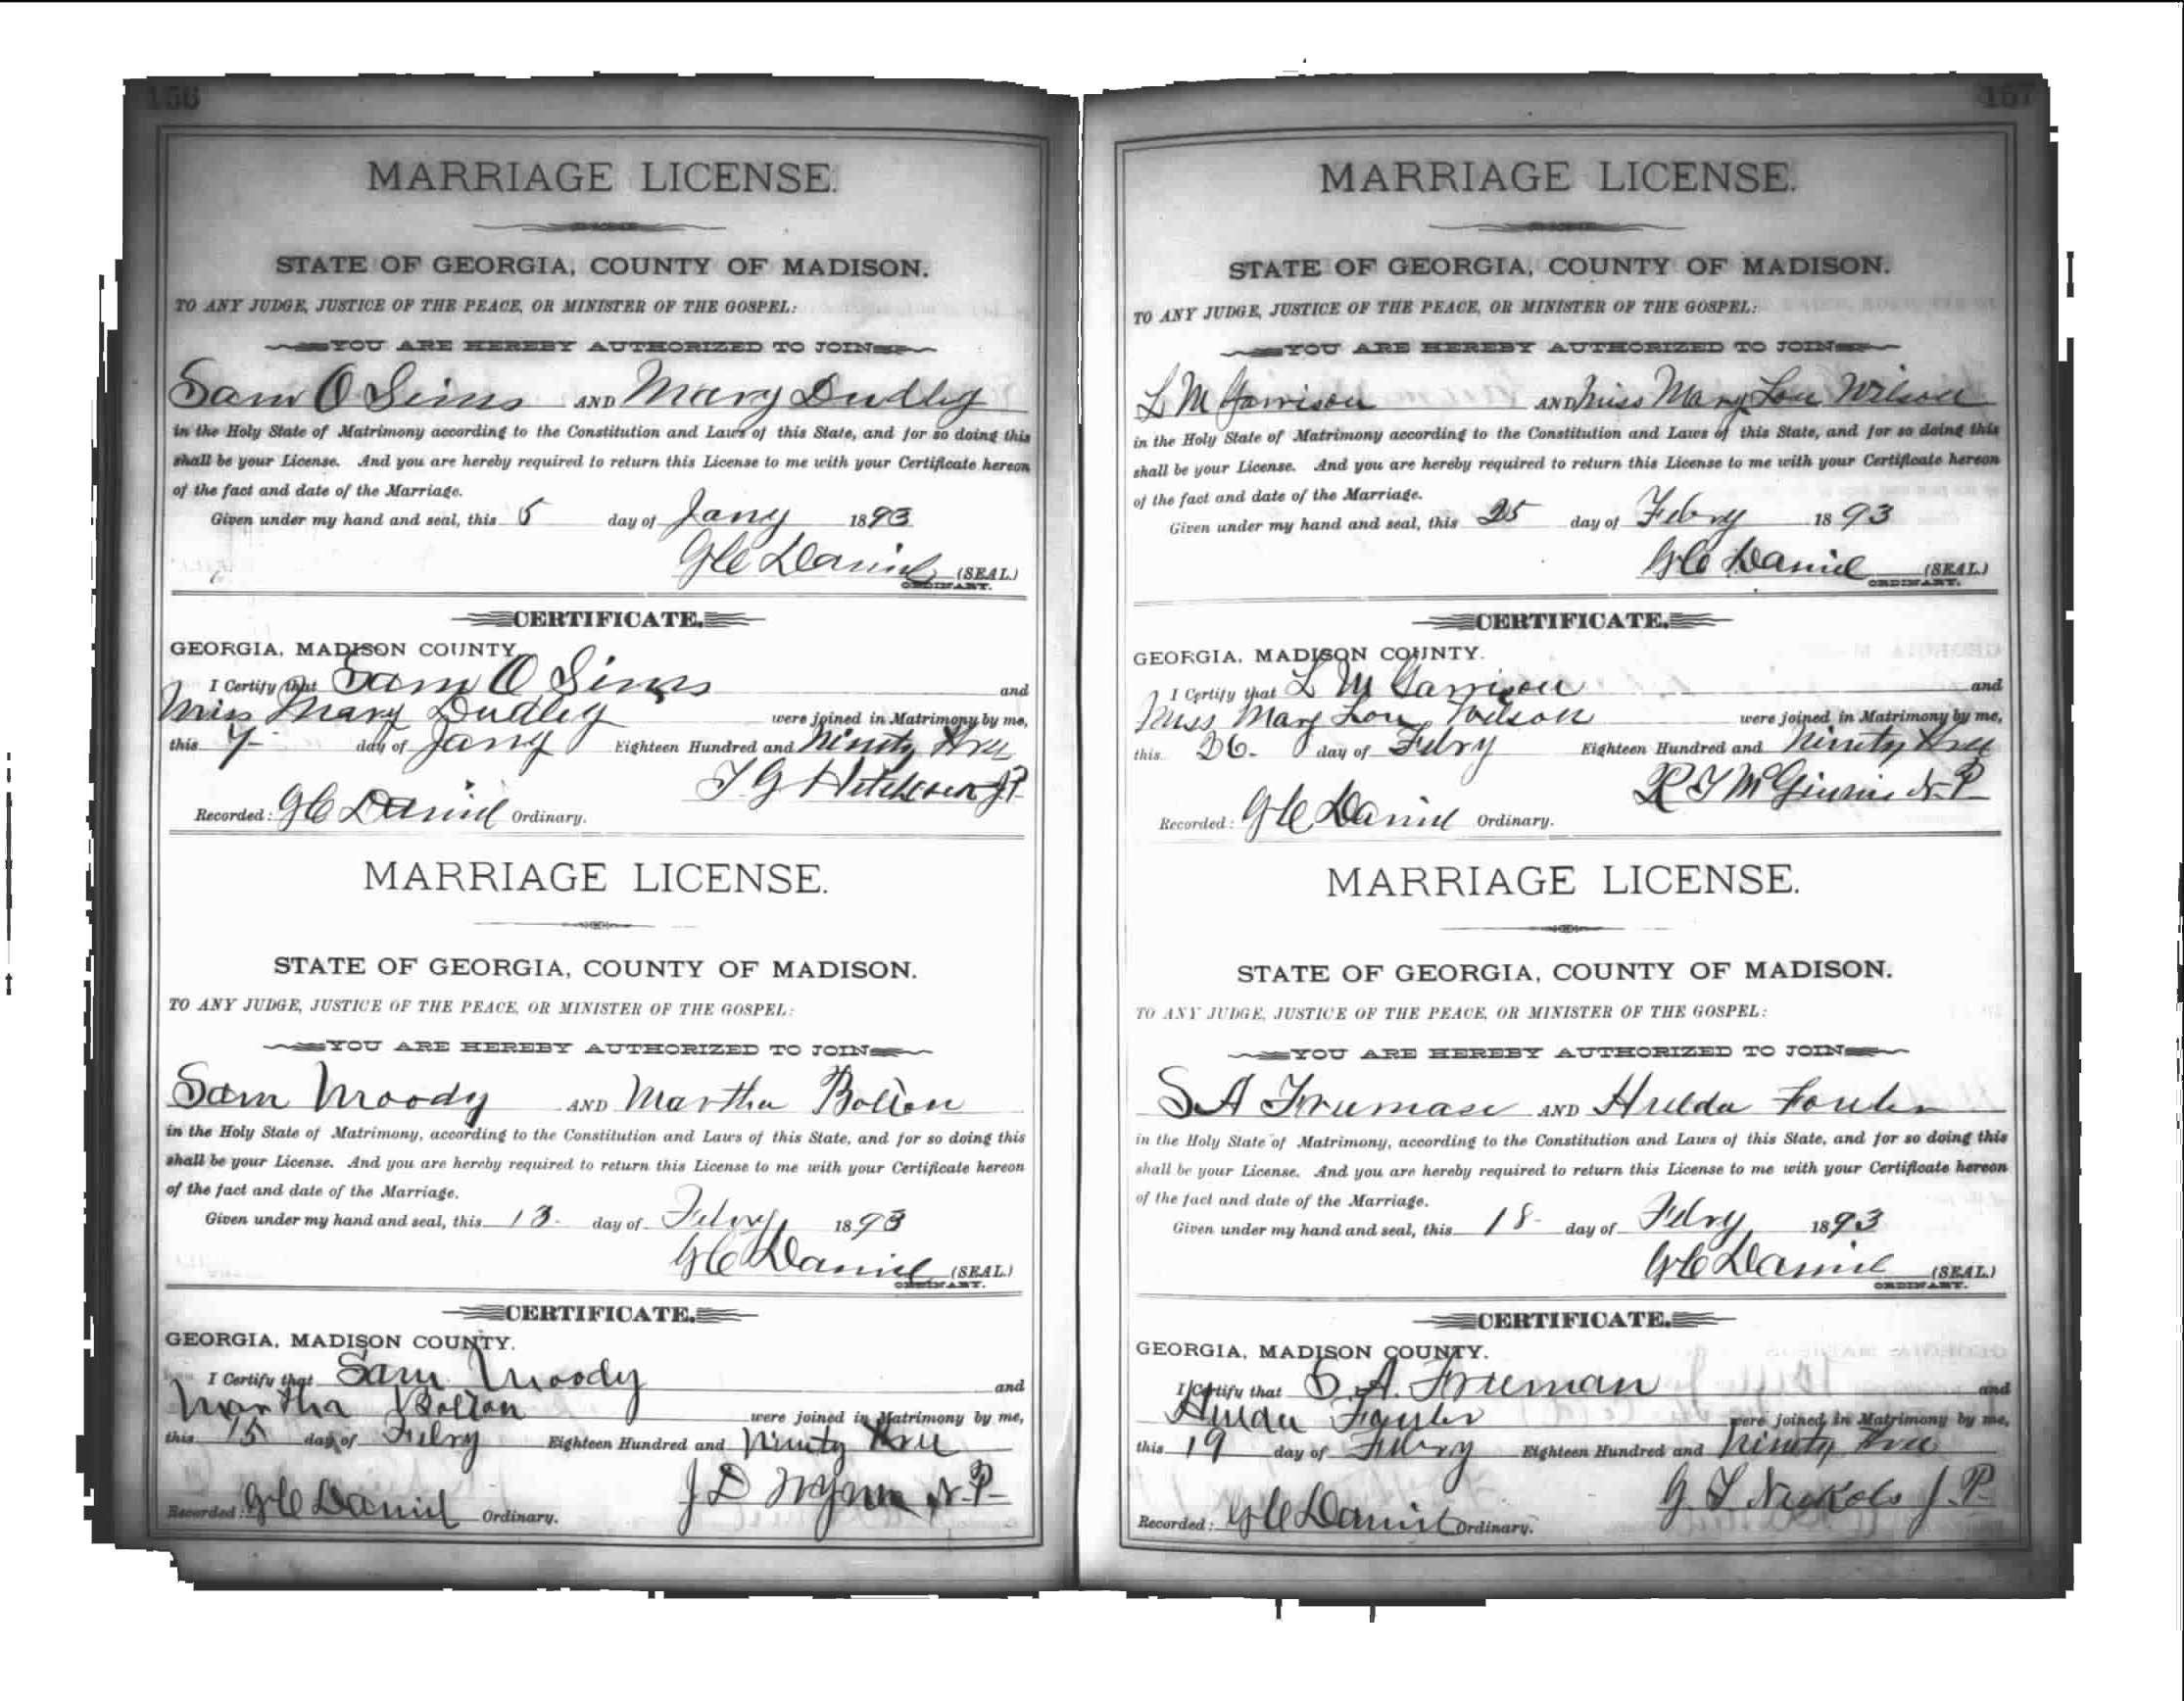 156
MARRIAGE LICENSE.
STATE OF GEORGIA, COUNTY OF MADISON.
TO ANY JUDGE, JUSTICE OF THE PEACE, OR MINISTER OF THE GOSPEL:
YOU ARE HEREBY AUTHORIZED TO JOIN
Sam O Sims AND Mary Dudley
in the Holy State of Matrimony according to the Constitution and Laws of this State, and for so doing this
shall be your License. And you are hereby required to return this License to me with your Certificate hereon
of the fact and date of the Marriage.
Given under my hand and seal, this 5 day of Jany 1893
G C Daniel (SEAL)
ORDINARY.
CERTIFICATE.
GEORGIA, MADISON COUNTY.
I Certify that Sam O Sims and
Miss Mary Dudley were joined in Matrimony by me,
this 7 day of Jany Eighteen Hundred and Ninety three
T G Hitchcock J.P.
Recorded: G C Daniel Ordinary.
MARRIAGE LICENSE.
STATE OF GEORGIA, COUNTY OF MADISON.
TO ANY JUDGE, JUSTICE OF THE PEACE, OR MINISTER OF THE GOSPEL:
YOU ARE HEREBY AUTHORIZED TO JOIN
Sam Moody AND Martha Bolton
in the Holy State of Matrimony, according to the Constitution and Laws of this State, and for so doing this
shall be your License. And you are hereby required to return this License to me with your Certificate hereon
of the fact and date of the Marriage.
Given under my hand and seal, this 13 day of Febry 1893
G C Daniel (SEAL)
ORDINARY.
CERTIFICATE.
GEORGIA, MADISON COUNTY.
I Certify that Sam Moody and
Martha Bolton were joined in Matrimony by me,
this 15 day of Febry Eighteen Hundred and Ninety three
J D N.P.
Recorded: G C Daniel Ordinary.
157
MARRIAGE LICENSE.
STATE OF GEORGIA, COUNTY OF MADISON.
TO ANY JUDGE, JUSTICE OF THE PEACE, OR MINISTER OF THE GOSPEL:
YOU ARE HEREBY AUTHORIZED TO JOIN
L M Garrison AND Miss Mary Lou Wilson
in the Holy State of Matrimony according to the Constitution and Laws of this State, and for so doing this
shall be your License. And you are hereby required to return this License to me with your Certificate hereon
of the fact and date of the Marriage.
Given under my hand and seal, this 25 day of Febry 1893
G C Daniel (SEAL)
ORDINARY.
CERTIFICATE.
GEORGIA, MADISON COUNTY.
I Certify that L M Garrison and
Miss Mary Lou Wilson were joined in Matrimony by me,
this 26. day of Febry Eighteen Hundred and Ninety three
R T McGinnis N.P.
Recorded: G C Daniel Ordinary.
MARRIAGE LICENSE.
STATE OF GEORGIA, COUNTY OF MADISON.
TO ANY JUDGE, JUSTICE OF THE PEACE, OR MINISTER OF THE GOSPEL:
YOU ARE HEREBY AUTHORIZED TO JOIN
S A Freeman AND Hulda Fowler
in the Holy State of Matrimony, according to the Constitution and Laws of this State, and for so doing this
shall be your License. And you are hereby required to return this License to me with your Certificate hereon
of the fact and date of the Marriage.
Given under my hand and seal, this 18 day of Febry 1893
G C Daniel (SEAL)
ORDINARY.
CERTIFICATE.
GEORGIA, MADISON COUNTY.
I Certify that S. A. Freeman and
Hulda Fowler were joined in Matrimony by me,
this 19 day of Febry Eighteen Hundred and Ninety three
J.P.
Recorded: G C Daniel Ordinary.